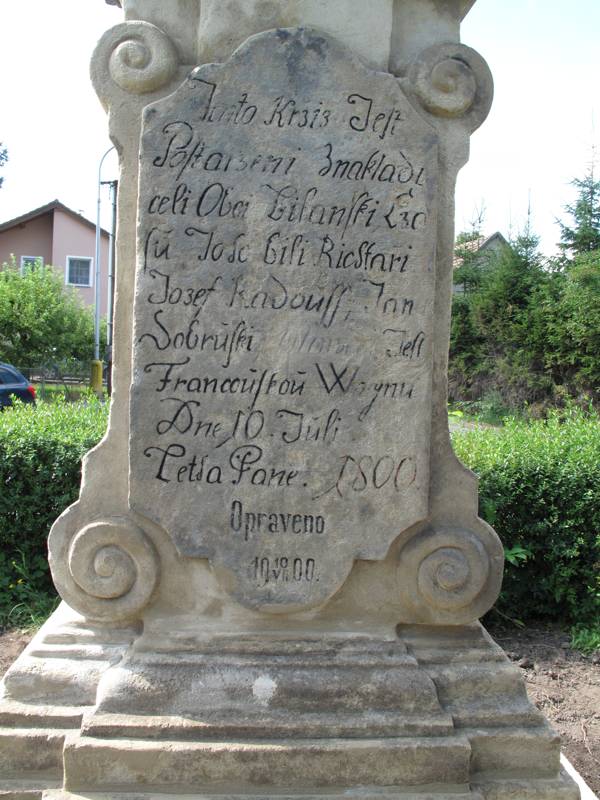 Tinto Krziz Jest
Postawzeni Znakladi
celi Obci Lilanski Czo
sü To So bili Richtari
Jozef Kadousş, Jan
Dobruski Jest
Francoustou Wognu
Dne 10. Juli
Letha Pane. 1800.
Opraveno
1900.